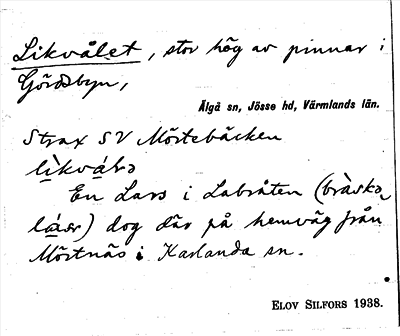 Likvålet, stor hög av pinnar i
Gördsbyn,
Älgå sn, Jösse hd, Värmlands län.
Strax SV Mörtebäcken
En Lars i Labråten (
) dog där på hemväg från
Mörtnäs i Karlanda sn.
ELOV SILFORS 1938.